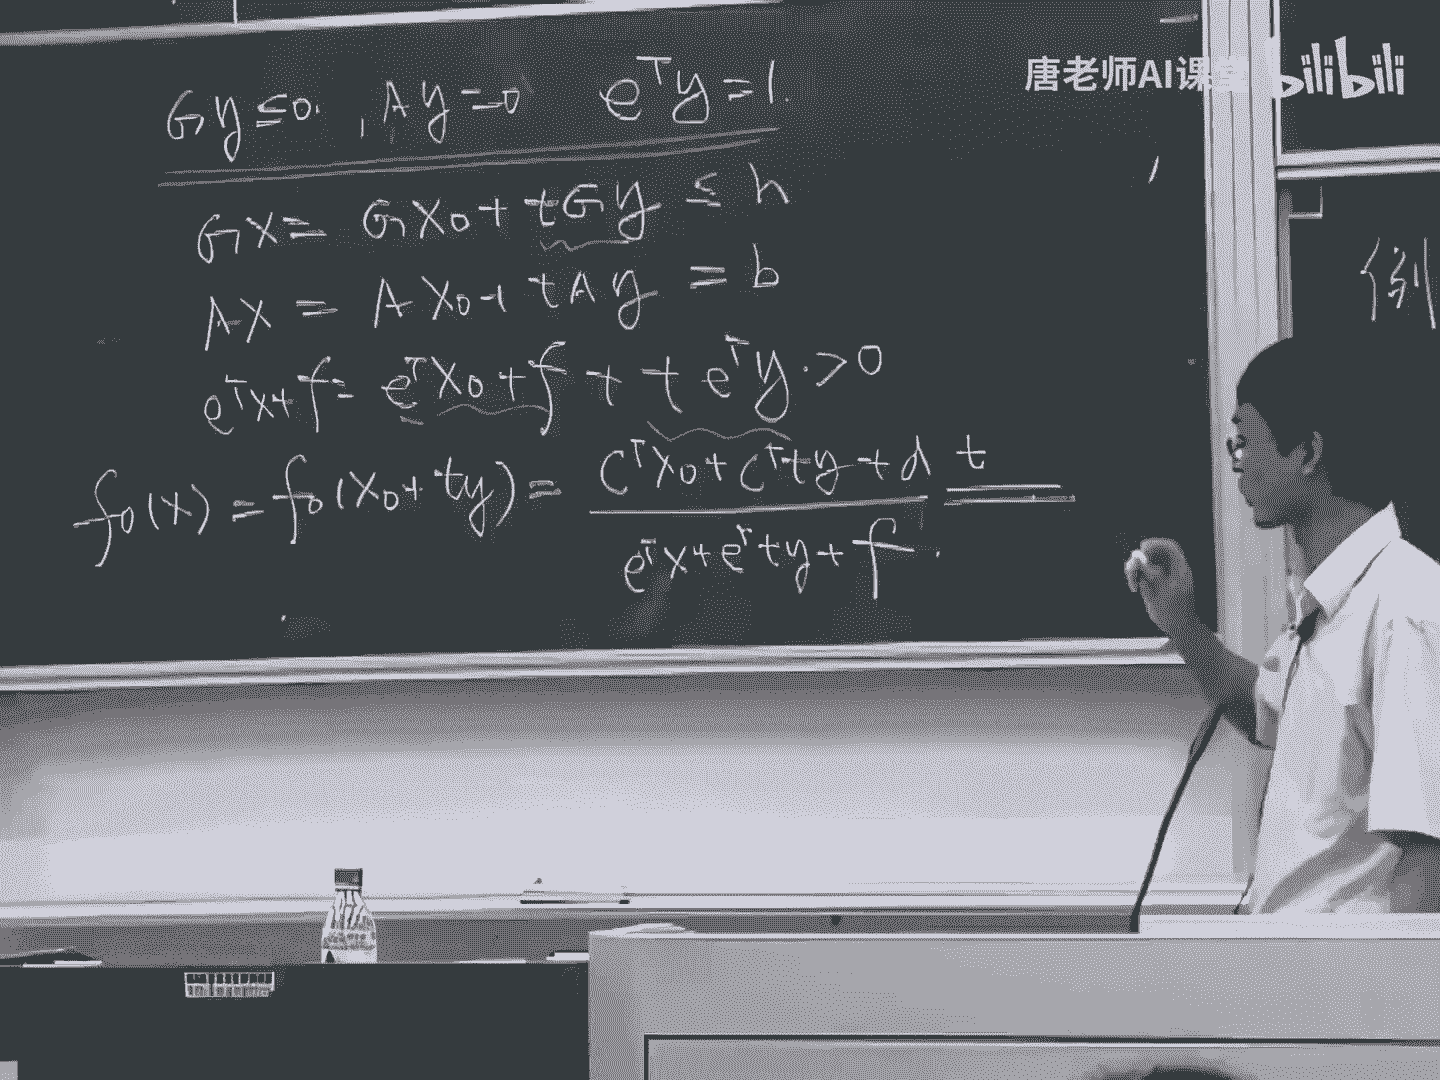 唐老师AI课堂 bilibili
Gy≤0. , Ay=0 eᵀy=1.
Gx= Gx₀+tGy ≤ h
Ax = Ax₀+tAy = b
eᵀx+f= eᵀx₀+f + t eᵀy.>0
f₀(x) = f₀(x₀+ty) = (Cᵀx₀+Cᵀty+d)/(eᵀx+eᵀty+f) t
例